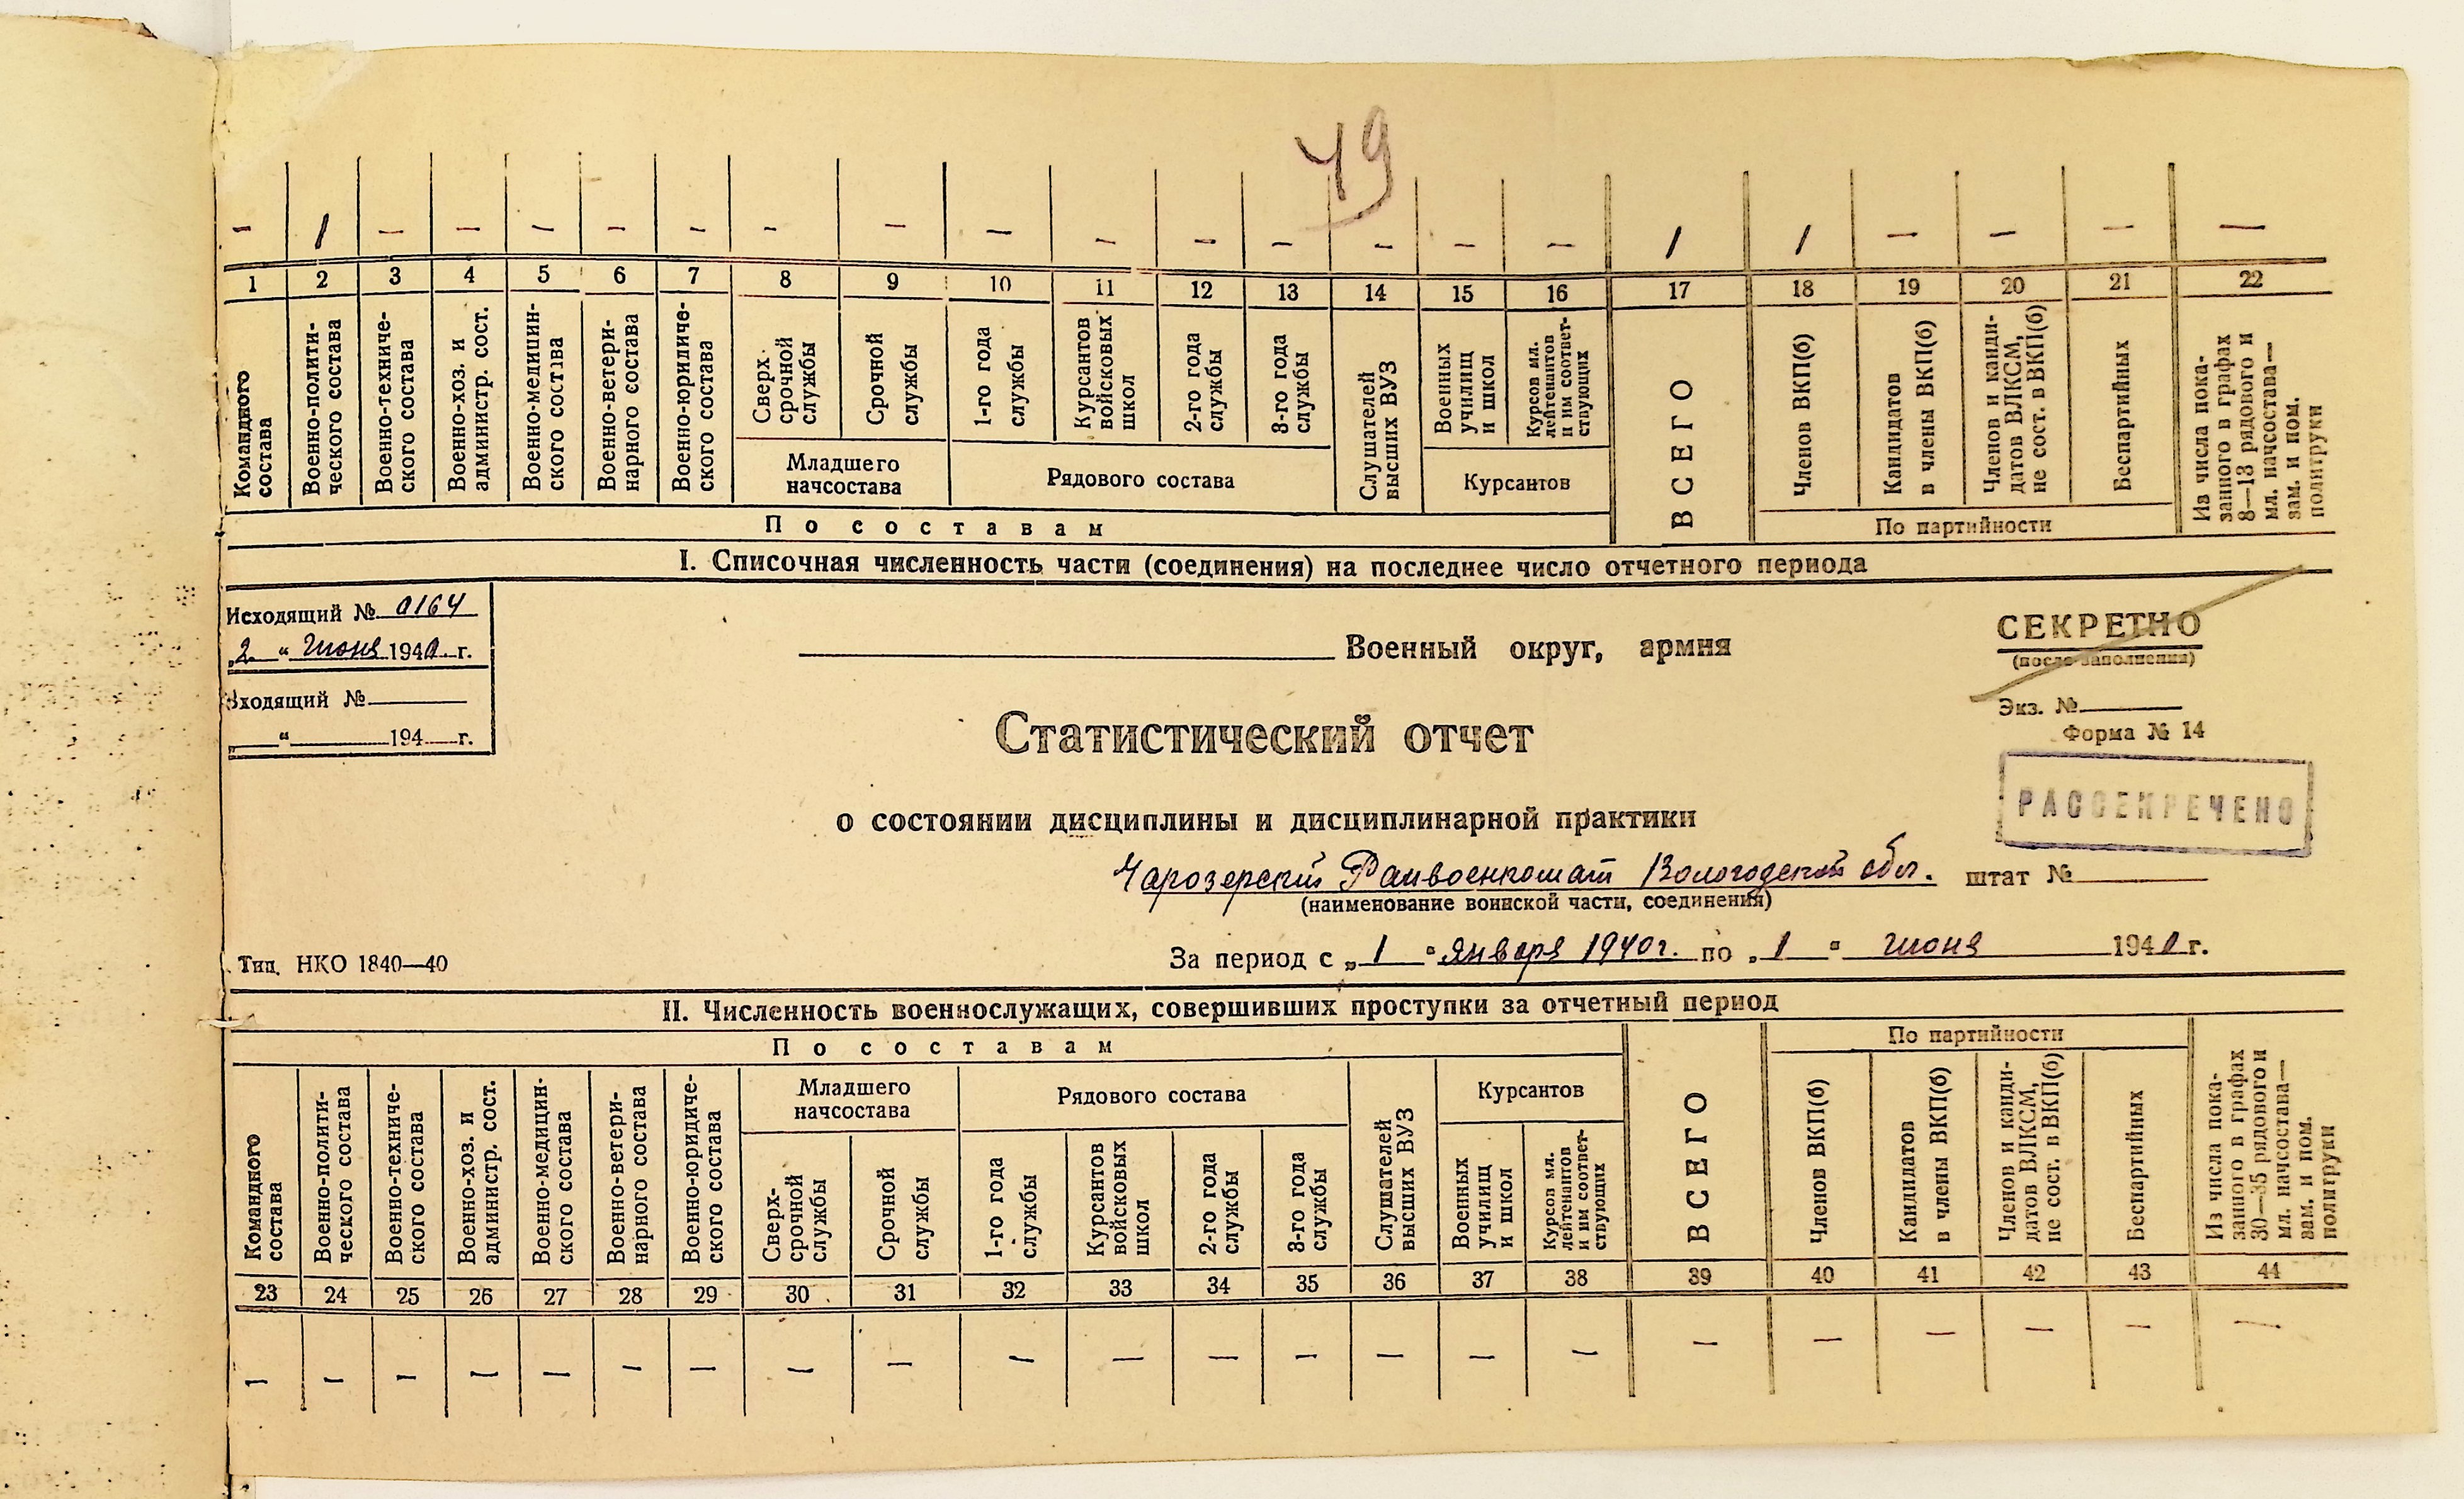 49
— / — — — — — — — — — — — — — — / / — — — —
1 2 3 4 5 6 7 8 9 10 11 12 13 14 15 16 17 18 19 20 21 22
Командного
состава
Военно-полити-
ческого состава
Военно-техниче-
ского состава
Военно-хоз. и
администр. сост.
Военно-медицин-
ского состава
Военно-ветери-
нарного состава
Военно-юридиче-
ского состава
Сверх-
срочной
службы
Срочной
службы
1-го года
службы
Курсантов
войсковых
школ
2-го года
службы
3-го года
службы
Слушателей
высших ВУЗ
Военных
училищ
и школ
Курсов мл.
лейтенантов
и им соответ-
ствующих
ВСЕГО
Членов ВКП(б)
Кандидатов
в члены ВКП(б)
Членов и канди-
датов ВЛКСМ,
не сост. в ВКП(б)
Беспартийных
Из числа пока-
занного в графах
8—13 рядового и
мл. начсостава—
зам. и пом.
политруки
Младшего
начсостава
Рядового состава
Курсантов
По составам
По партийности
I. Списочная численность части (соединения) на последнее число отчетного периода
Исходящий № 0164
„2 “ Июня 1940 г.
Входящий №
„ “ 194 г.
Военный округ, армия
СЕКРЕТНО
(после заполнения)
Экз. №
Форма № 14
Статистический отчет
РАССЕКРЕЧЕНО
о состоянии дисциплины и дисциплинарной практики
Чарозерский Райвоенкомат Вологодской обл. штат №
(наименование воинской части, соединения)
Тип. НКО 1840—40
За период с „ 1 “ января 1940 г. по „ 1 “ июня 1940 г.
II. Численность военнослужащих, совершивших проступки за отчетный период
По составам
По партийности
Младшего
начсостава
Рядового состава
Курсантов
Командного
состава
Военно-полити-
ческого состава
Военно-техниче-
ского состава
Военно-хоз. и
администр. сост.
Военно-медицин-
ского состава
Военно-ветери-
нарного состава
Военно-юридиче-
ского состава
Сверх-
срочной
службы
Срочной
службы
1-го года
службы
Курсантов
войсковых
школ
2-го года
службы
3-го года
службы
Слушателей
высших ВУЗ
Военных
училищ
и школ
Курсов мл.
лейтенантов
и им соответ-
ствующих
ВСЕГО
Членов ВКП(б)
Кандидатов
в члены ВКП(б)
Членов и канди-
датов ВЛКСМ,
не сост. в ВКП(б)
Беспартийных
Из числа пока-
занного в графах
30—35 рядового и
мл. начсостава—
зам. и пом.
политруки
23 24 25 26 27 28 29 30 31 32 33 34 35 36 37 38 39 40 41 42 43 44
— — — — — — — — — — — — — — — — — — — — — —